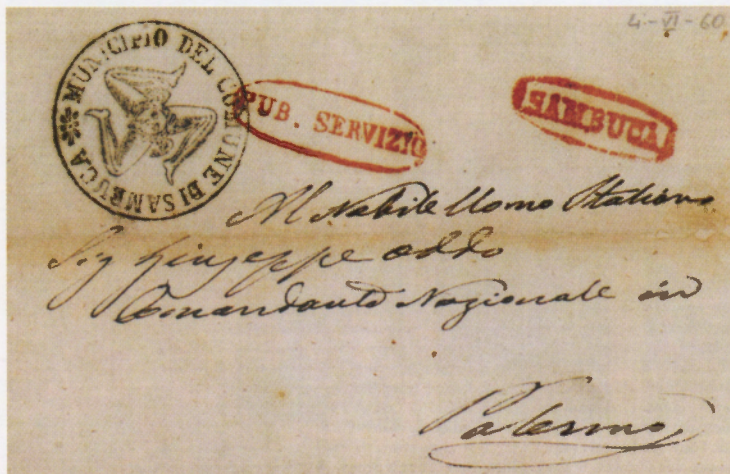 4-VI-60
MUNICIPIO DEL COMUNE DI SAMBUCA
PUB. SERVIZIO
SAMBUCA
Al Nobile Uomo Italiano
Sig Giuseppe Oddo
Comandante Nazionale in
Palermo